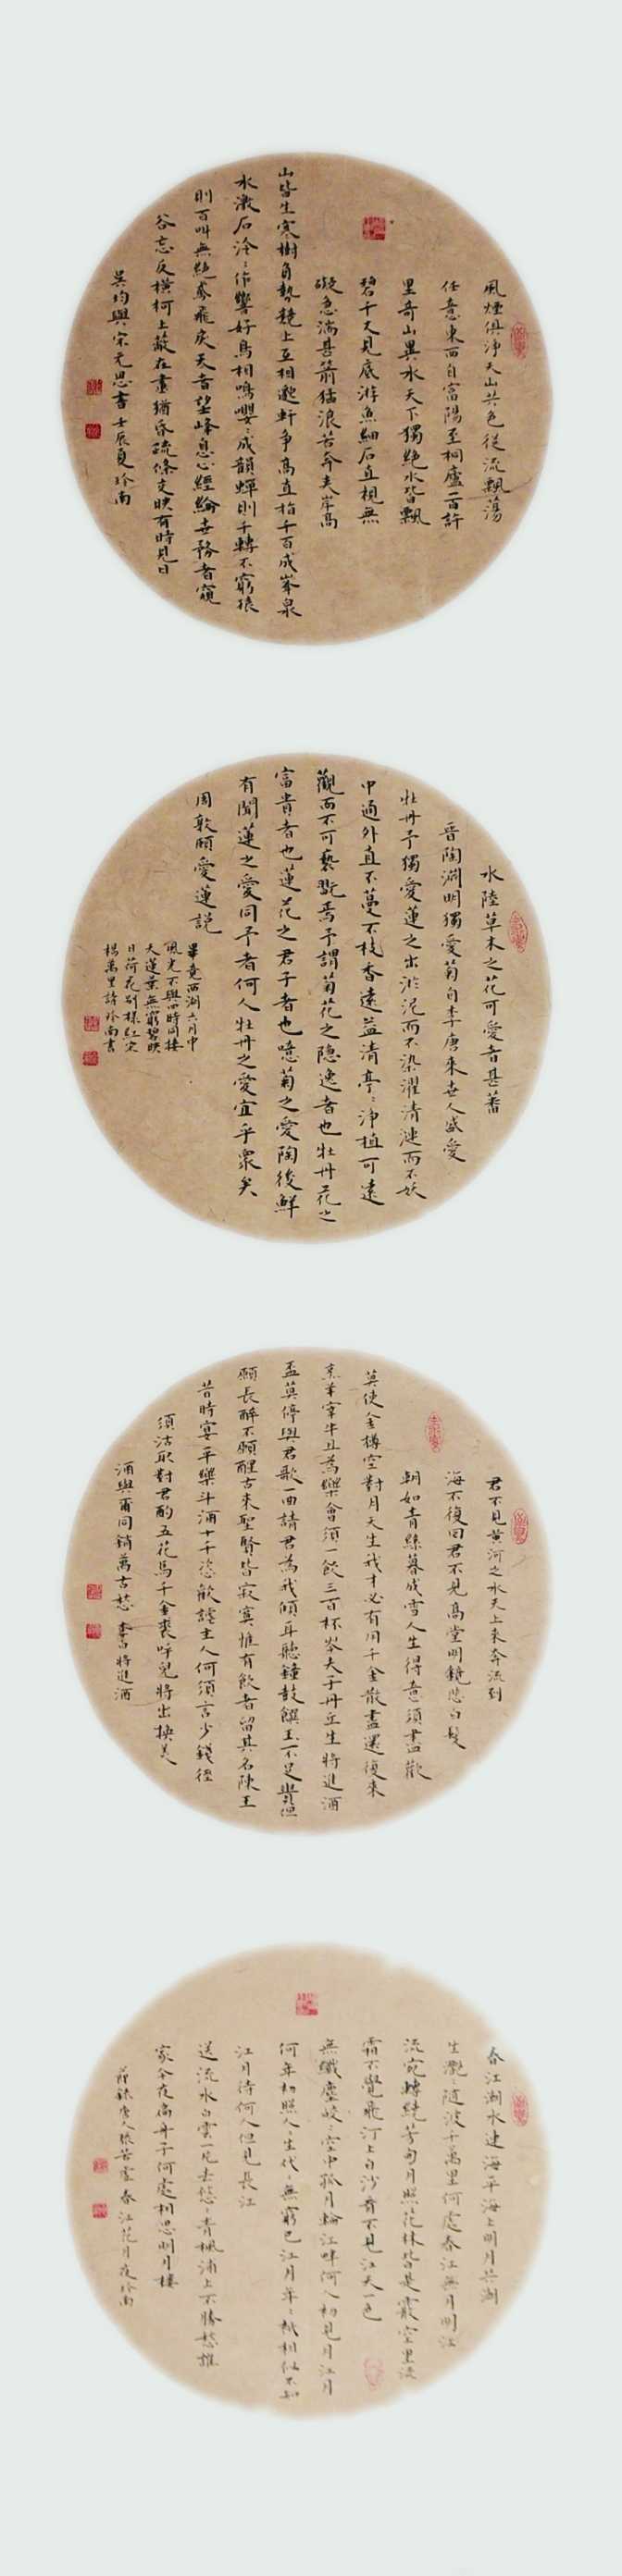 風煙俱淨天山共色從流飄蕩
任意東西自富陽至桐廬一百許
里奇山異水天下獨絕水皆飄
碧千丈見底游魚細石直視無
礙急湍甚箭猛浪若奔夾岸高
山皆生寒樹負勢競上互相邈軒爭高直指千百成峯泉
水激石泠〻作響好鳥相鳴嚶〻成韻蟬則千轉不窮猿
則百叫無絕鳶飛戾天者望峰息心經綸世務者窺
谷忘反橫柯上蔽在晝猶昏疏條交映有時見日
吳均與宋元思書壬辰夏玲南
水陸草木之花可愛者甚蕃
晉陶淵明獨愛菊自李唐來世人盛愛
牡丹予獨愛蓮之出淤泥而不染濯清漣而不妖
中通外直不蔓不枝香遠益清亭〻淨植可遠
觀而不可褻翫焉予謂菊花之隱逸者也牡丹花之
富貴者也蓮花之君子者也噫菊之愛陶後鮮
有聞蓮之愛同予者何人牡丹之愛宜乎眾矣
周敦頤愛蓮說
畢竟西湖六月中
風光不與四時同接
天蓮葉無窮碧映
日荷花別樣紅宋
楊萬里詩玲南書
君不見黃河之水天上來奔流到
海不復回君不見高堂明鏡悲白髮
朝如青絲暮成雪人生得意須盡歡
莫使金樽空對月天生我才必有用千金散盡還復來
烹羊宰牛且為樂會須一飲三百杯岑夫子丹丘生將進酒
盃莫停與君歌一曲請君為我傾耳聽鐘鼓饌玉不足貴但
願長醉不願醒古來聖賢皆寂寞惟有飲者留其名陳王
昔時宴平樂斗酒十千恣歡謔主人何須言少錢徑
須沽取對君酌五花馬千金裘呼兒將出換美
酒與爾同銷萬古愁 李白將進酒
春江潮水連海平海上明月共潮
生灔〻隨波千萬里何處春江無月明江
流宛轉繞芳甸月照花林皆是霰空里流
霜不覺飛汀上白沙看不見江天一色
無纖塵皎〻空中孤月輪江畔何人初見月江月
何年初照人〻生代〻無窮已江月年〻祗相似不知
江月待何人但見長江
送流水白雲一片去悠〻青楓浦上不勝愁誰
家今夜扁舟子何處相思明月樓
節錄唐人張若虛春江花月夜玲南